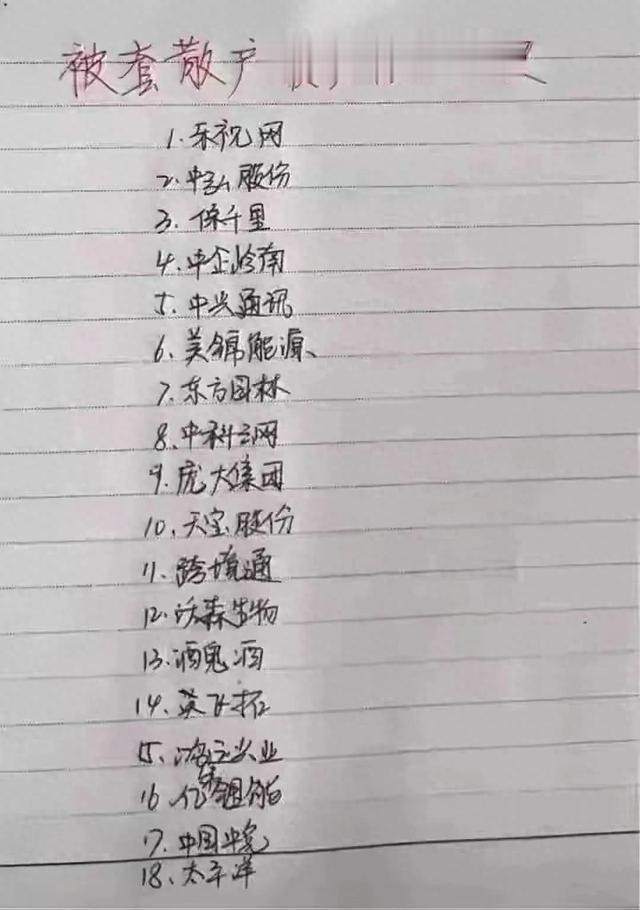 被套散户
1.乐视网
2.中弘股份
3.保千里
4.中企岭南
5.中兴通讯
6.美锦能源、
7.东方园林
8.中科云网
9.庞大集团
10.天宝股份
11.跨境通
12.沃森生物
13.酒鬼酒
14.英飞拓
15.兴业
16.亿
17.中国中免
18.太平洋